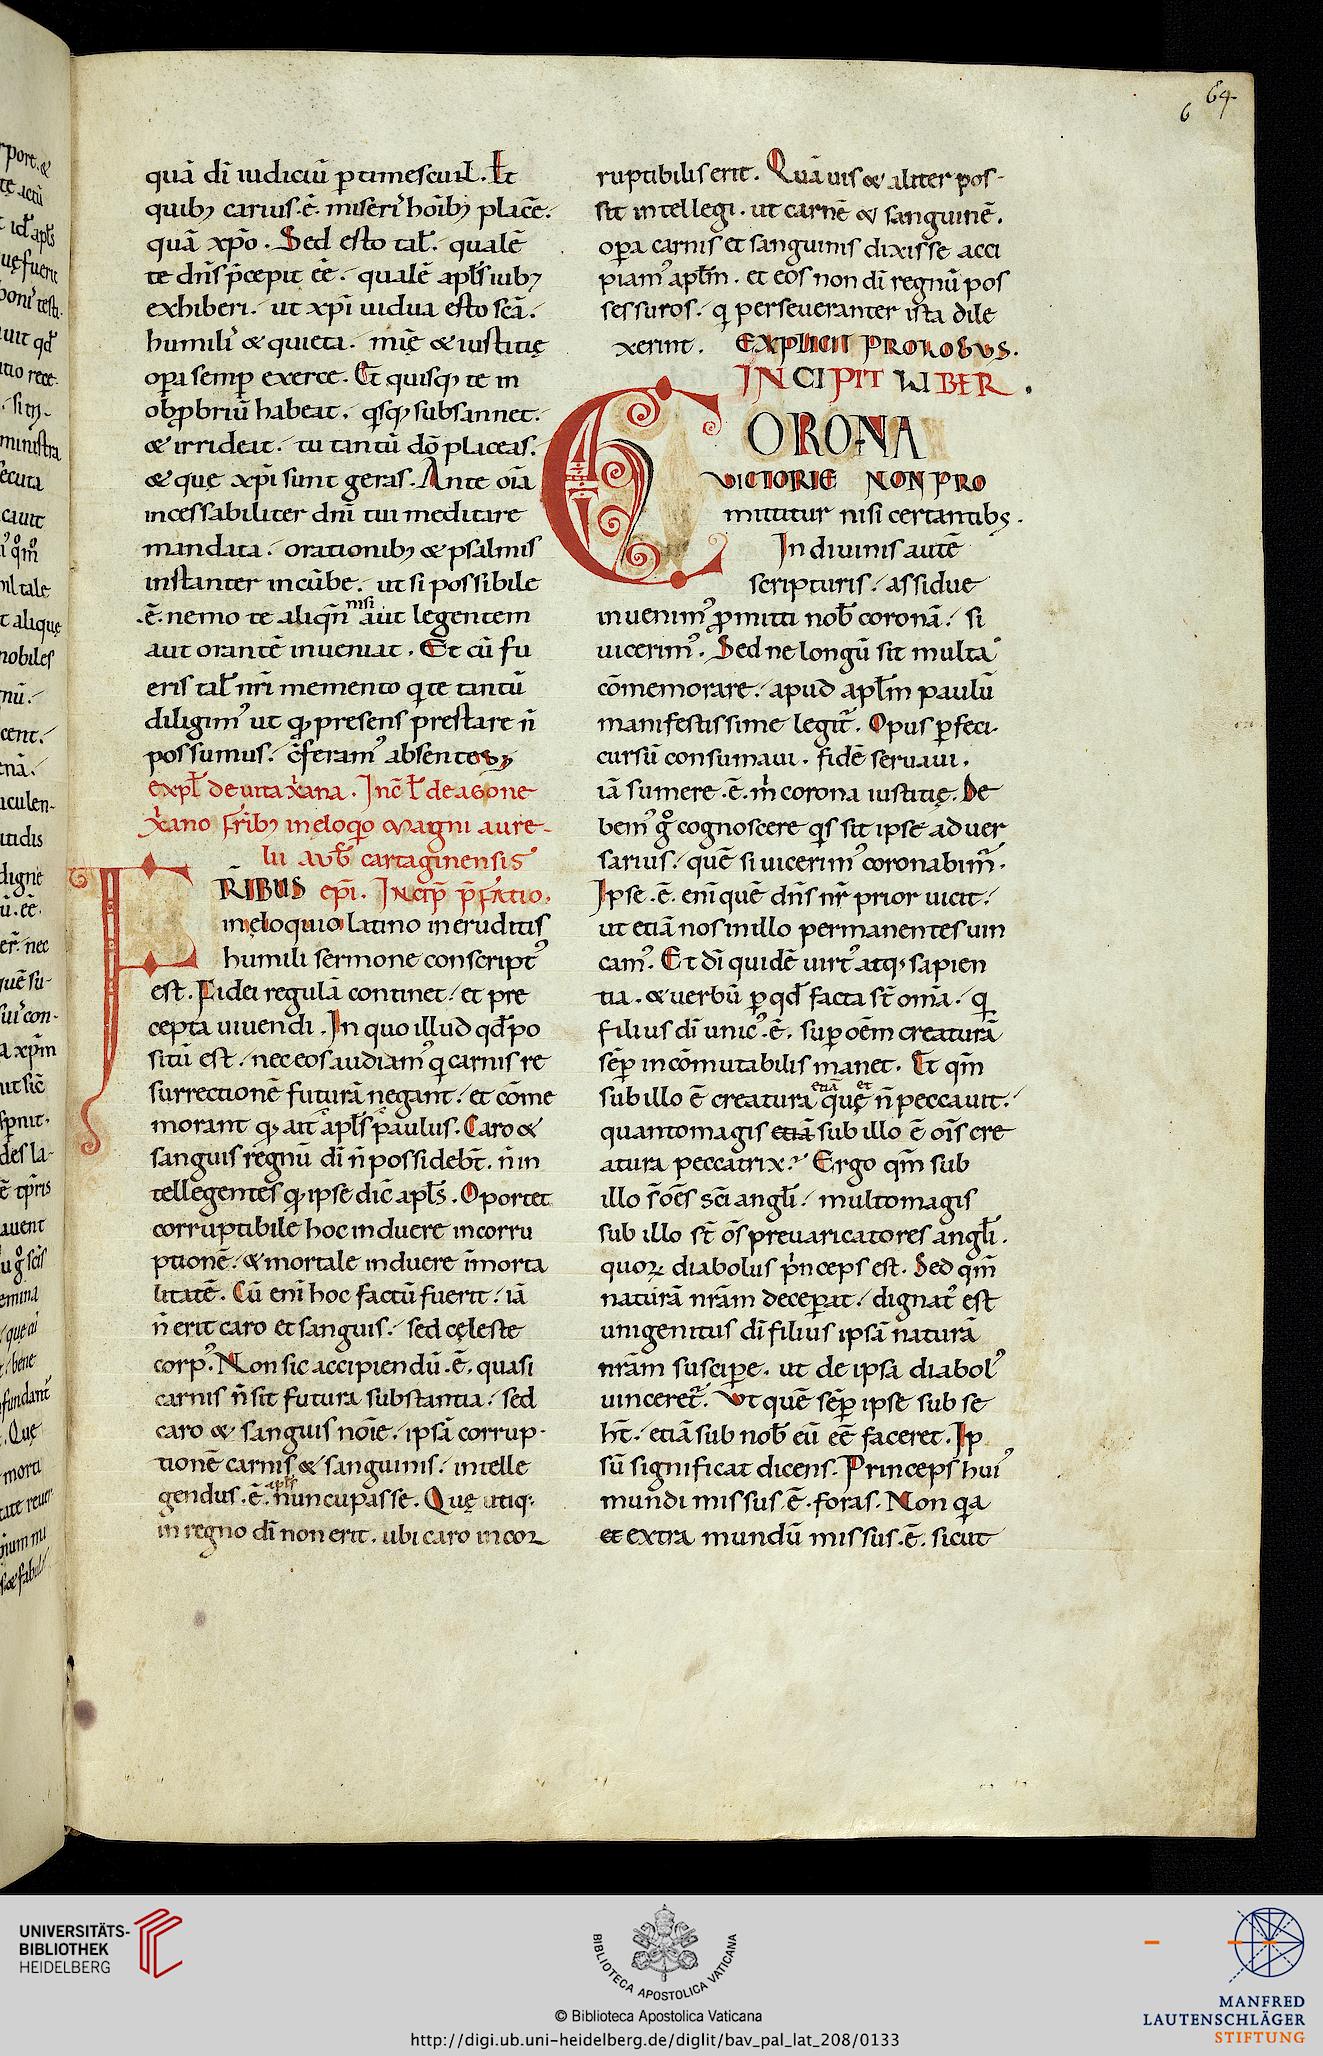 64
6
quā dī iudiciū ptimescunt. Et
quibꝫ carius.ē. miseri hoībꝫ placē.
quā xp̄o. Sed esto tal̄. qualē
te dn̄s p̄cepit eē. qualē apl̄s iubꝫ
exhiberi. ut xp̄i uidua esto scā.
humilis & quieta. mīę & iustitię
opa semp exerce. Et quisqꝫ te in
obp̄briū habeat. qsqꝫ subsannet.
& irrideat. tu tantū dō placeas.
& quę xp̄i sunt geras. Ante oīa
incessabiliter dn̄i tui meditare
mandata. orationibꝫ & psalmis
instanter incūbe. ut si possibile
.ē. nemo te aliqn̄ nisi aut legentem
aut orantē inueniat. Et cū fu
eris tal̄ nr̄i memento q te tantū
diligimꝰ ut qꝫ presens prestare n̄
possumus. c̄feramꝰ absentes;
expl̄ de uita xāna. Inc̄ l̄ de agone
xāno frībꝫ in eloqo magni aure
lii aug̅ cartaginensis
FRIBUS epī. Incip̄ p̄fatio.
in eloquio latino ineruditis
humili sermone conscriptꝰ
est. Fidei regulā continet. et pre
cepta uiuendi. In quo illud qd̄ po
sitū est. nec eos audiamꝰ q carnis re
surrectionē futurā negant. et cōme
morant qꝫ ait apl̄s paulus. Caro &
sanguis regnū dī n̄ possidebt̄. n̄ in
tellegentes qꝫ ipse dic̄ apl̄s. Oportet
corruptibile hoc induere incorru
ptionē. & mortale induere īmorta
litatē. Cū enī hoc factū fuerit. iā
n̄ erit caro et sanguis. sed cęleste
corpꝰ. Non sic accipiendū.ē. quasi
carnis n̄ sit futura substantia. sed
caro & sanguis noīe. ipsā corrup-
tionē carnis & sanguinis. intelle
gendus.ē. apl̄s nuncupasse. Quę utiq;
in regno dī non erit. ubi caro incor
ruptibilis erit. Quāuis & aliter pos-
sit intellegi. ut carnē & sanguinē.
opa carnis et sanguinis dixisse acci
piamꝰ apl̄m. et eos non dī regnū pos
sessuros. q perseueranter ista dile
xerint. EXPLICIT PROLOGUS.
INCIPIT LIBER.
CORONA
VICTORIE NON PRO
mittitur nisi certantibꝫ.
In diuinis autē
scripturis. assidue
inuenimꝰ p̄mitti nob̄ coronā. si
uicerimꝰ. Sed ne longū sit multa
cōmemorare. apud apl̄m paulū
manifestissime legit̄. Opus pfeci.
cursū consumaui. fidē seruaui.
iā sumere.ē. m̄ corona iustitię. De
bemꝰ g̊ cognoscere qs sit ipse aduer
sarius. quē si uicerimꝰ coronabim̄.
Ipse.ē. enī quē dn̄s nr̄ prior uicit.
ut etiā nos in illo permanentes uin
camꝰ. Et dī quidē uirtꝰ atqꝫ sapien
tia. & uerbū p qd̄ facta st̄ om̄a. q
filius dī unicꝰ.ē. sup oēm creaturā
sēp incōmutabilis manet. Et qm̄
sub illo ē creatura etiā quę et n̄ peccauit.
quantomagis etiā sub illo ē oīs cre
atura peccatrix. Ergo qm̄ sub
illo s̄ oēs scī angl̄i. multomagis
sub illo st̄ oēs preuaricatores angl̄i.
quoꝝ diabolus p̄nceps est. Sed qm̄
naturā nr̄am deceperat. dignatꝰ est
unigenitus dī filius ipsā naturā
nr̄am suscipe. ut de ipsa diabolꝰ
uinceret̄. Ut quē sēp ipse sub se
ht̄. etiā sub nob̄ eū eē faceret. Ip
sū significat dicens. Princeps huiꝰ
mundi missus.ē. foras. Non qa
et extra mundū missus.ē. sicut
UNIVERSITÄTS-
BIBLIOTHEK
HEIDELBERG
BIBLIOTECA APOSTOLICA VATICANA
© Biblioteca Apostolica Vaticana
http://digi.ub.uni-heidelberg.de/diglit/bav_pal_lat_208/0133
MANFRED
LAUTENSCHLÄGER
STIFTUNG